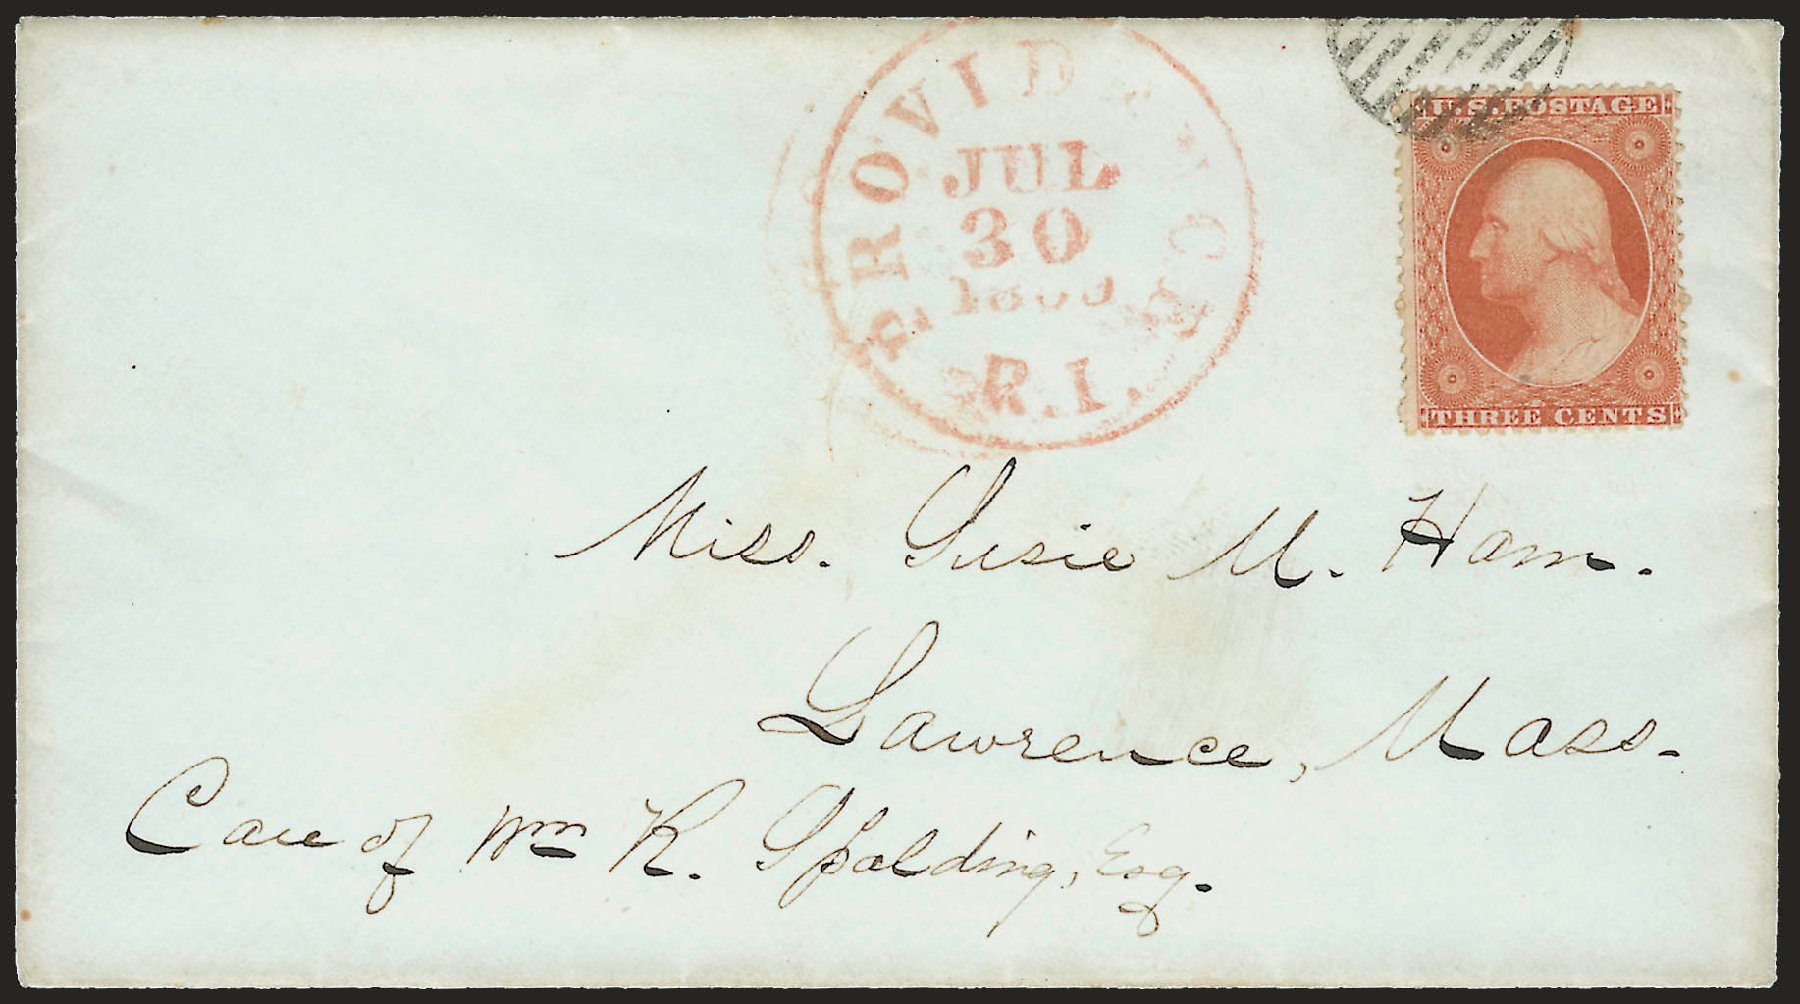 PROVIDENCE
JUL
30
R.I.
U.S. POSTAGE
THREE CENTS
Miss. Susie M. Ham.
Lawrence, Mass.
Care of Wm R. Spalding, Esq.